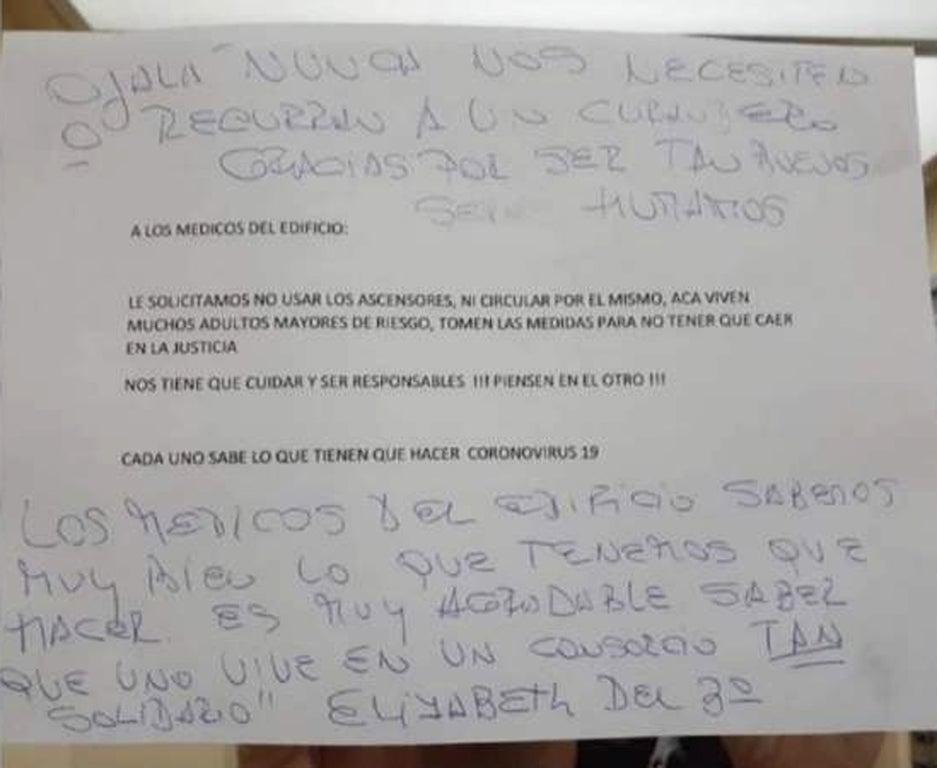 OJALA NUNCA NOS NECESITEN
O RECURRAN A UN CURANDERO
GRACIAS POR SER TAN BUENOS
SERES HUMANOS
A LOS MEDICOS DEL EDIFICIO:
LE SOLICITAMOS NO USAR LOS ASCENSORES, NI CIRCULAR POR EL MISMO, ACA VIVEN
MUCHOS ADULTOS MAYORES DE RIESGO, TOMEN LAS MEDIDAS PARA NO TENER QUE CAER
EN LA JUSTICIA
NOS TIENE QUE CUIDAR Y SER RESPONSABLES !!! PIENSEN EN EL OTRO !!!
CADA UNO SABE LO QUE TIENEN QUE HACER CORONOVIRUS 19
LOS MEDICOS DEL EDIFICIO SABEMOS
MUY BIEN LO QUE TENEMOS QUE
HACER. ES MUY AGRADABLE SABER
QUE UNO VIVE EN UN CONSORCIO TAN
SOLIDARIO" ELIZABETH DEL 3º